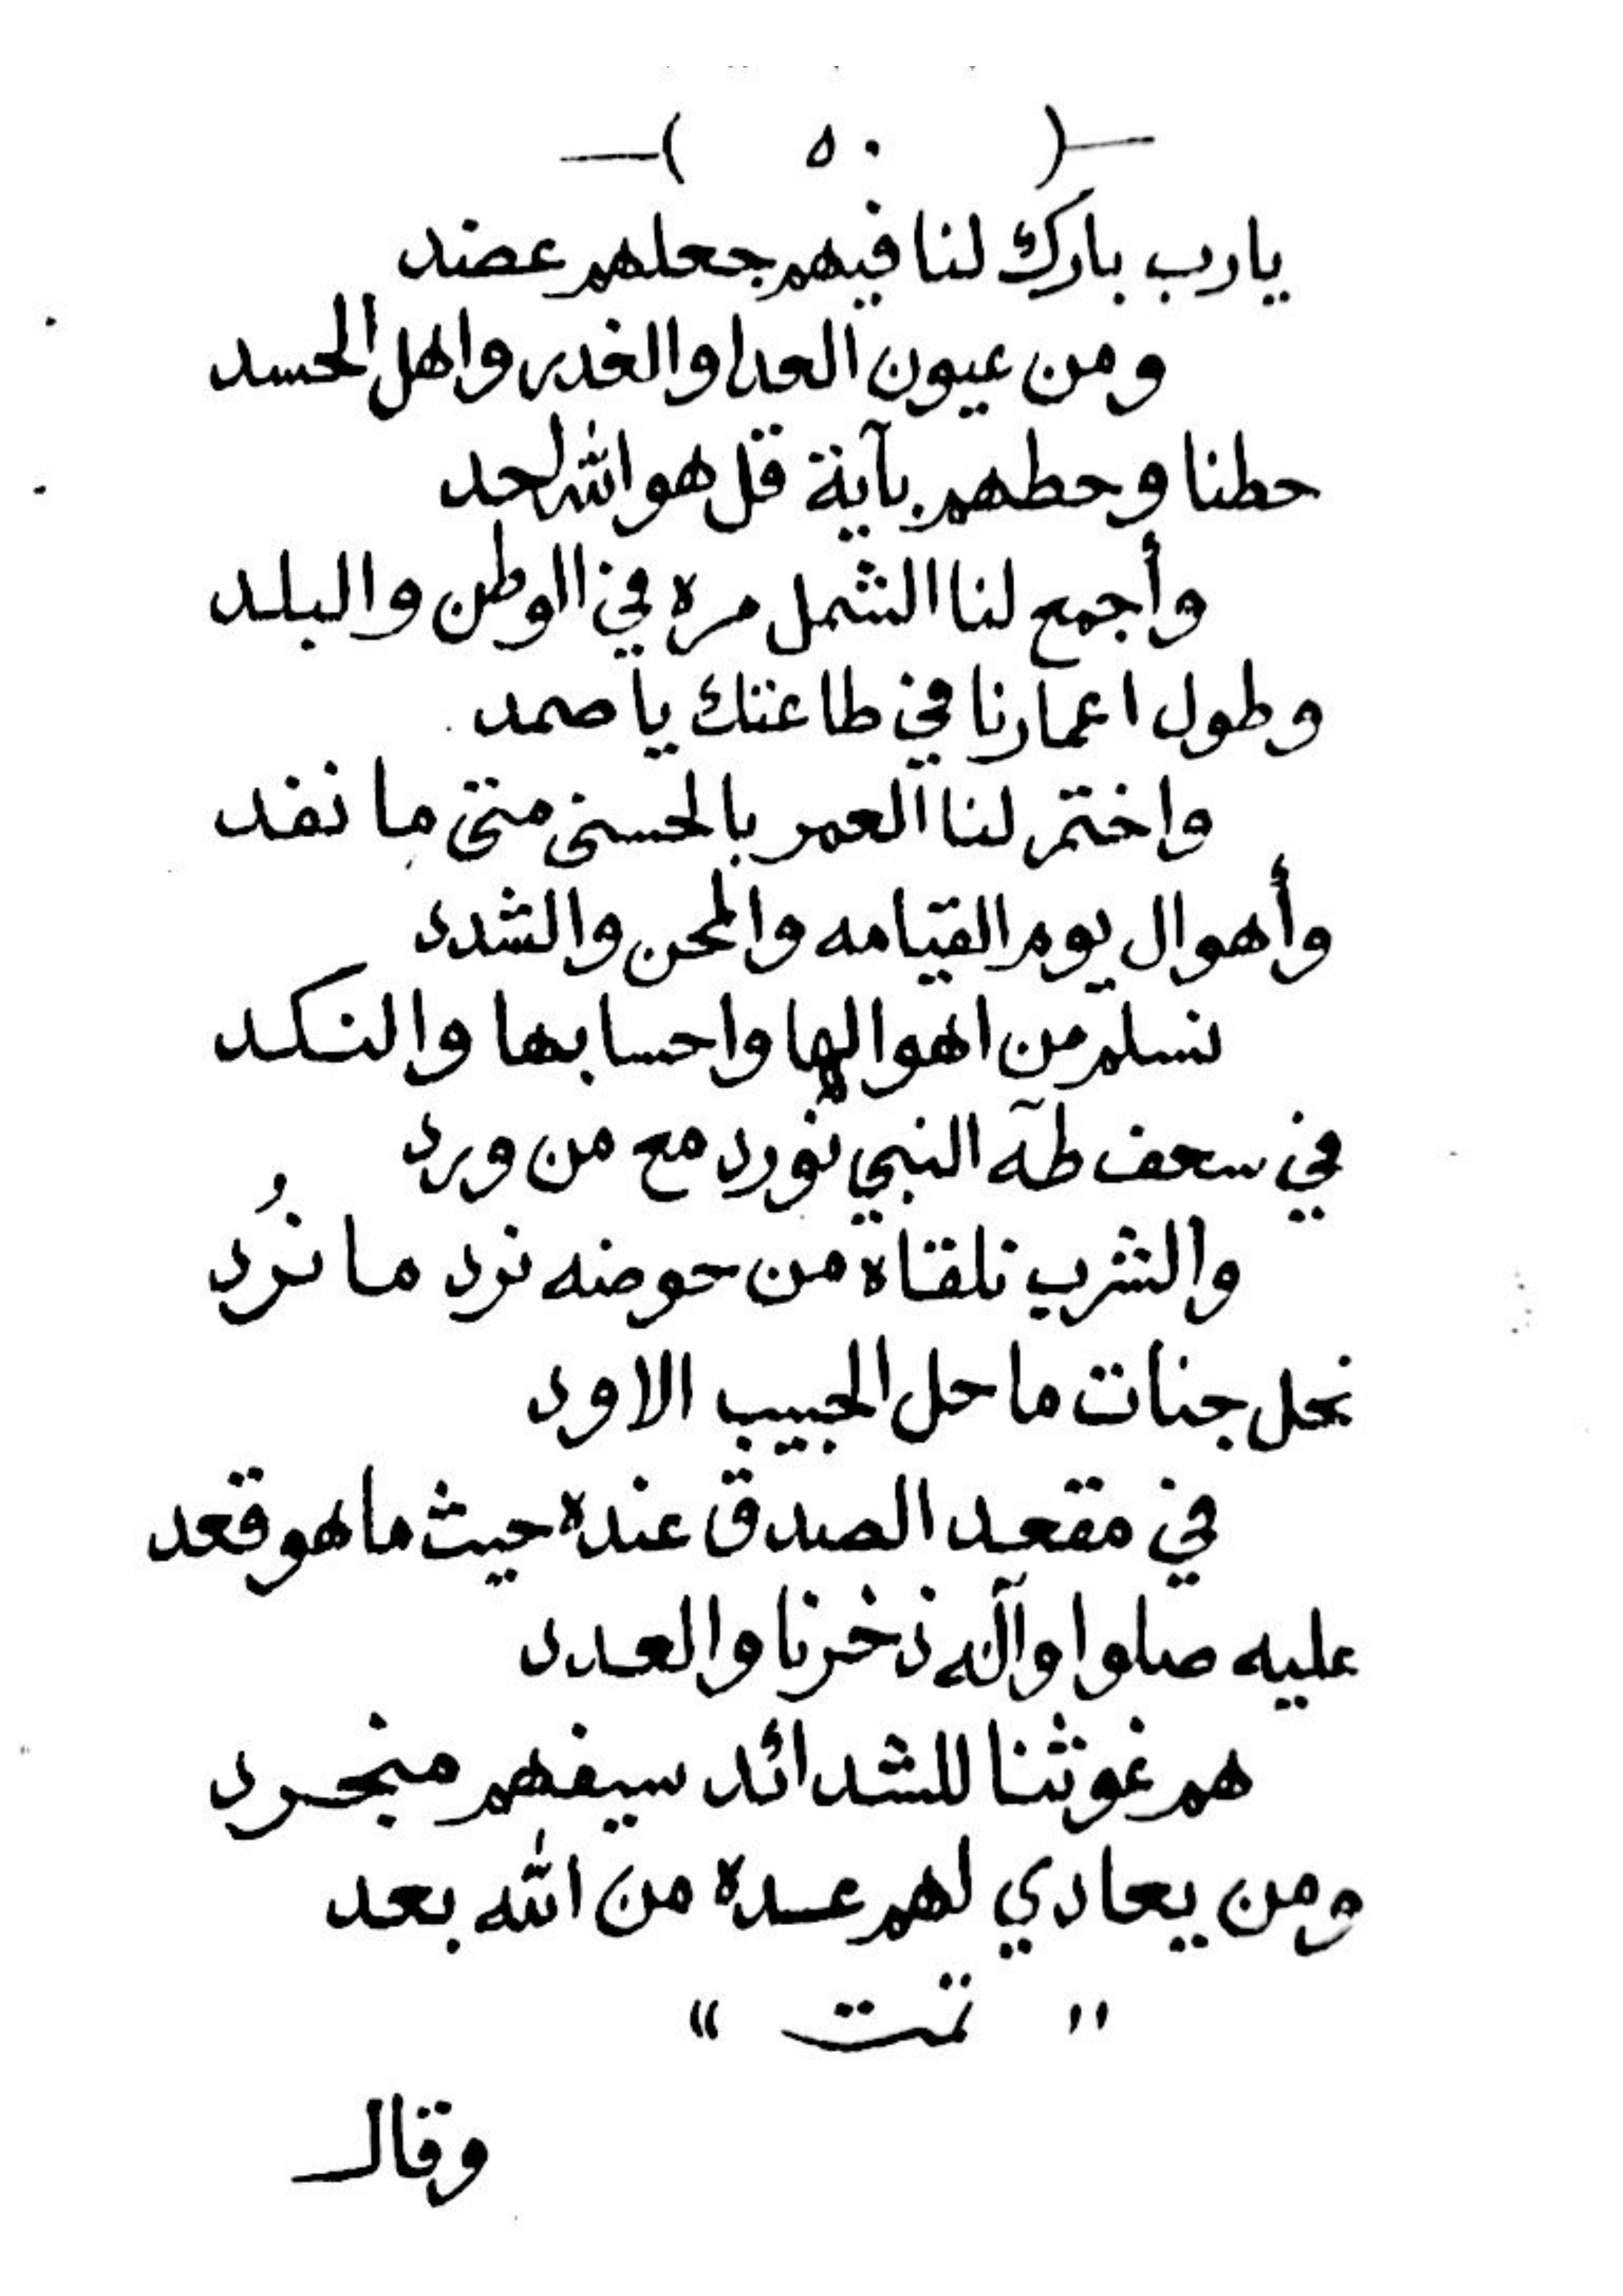 —( ٥٠ )—
يارب بارك لنا فيهم جعلهم عضد
ومن عيون العدا والغدر واهل الحسد
حطنا وحطهم بآية قل هو الله احد
وأجمع لنا الشمل مره في الوطن والبلد
وطول اعمارنا في طاعتك يا صمد
واختم لنا العمر بالحسنى متى ما نفد
وأهوال يوم القيامه والمحن والشدد
نسلم من اهوالها واحسابها والنكد
في سعف طه النبي نورد مع من ورد
والشرب نلقاه من حوضه نرد ما نُرد
نحل جنات ما حل الحبيب الاود
في مقعد الصدق عنده حيث ما هو قعد
عليه صلوا وآله ذخرنا والعدد
هم غوثنا للشدائد سيفهم منجرد
ومن يعادي لهم عده من الله بعد
" تمت "
وقال